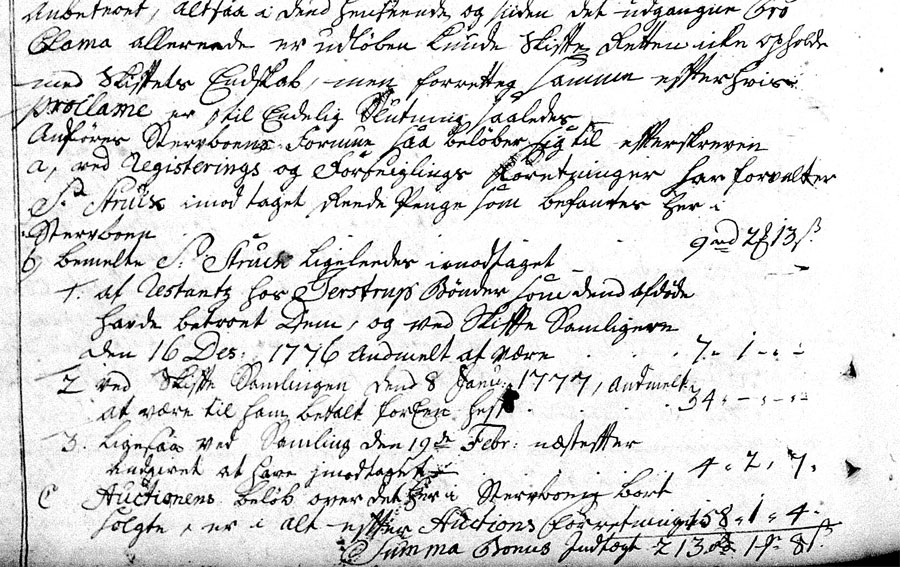 Anbetroet, altsaa i dend henseende og siiden det udgangne Pro
Clama allereede er udløben kunde Skifte Retten icke opholde
med Skiftets Endskab, men forretteg samme effter hvis
proclame er til Endelig Slutning saaledes
Anføres Sterrboens Formue saa beløber sig til effterskreven
a, ved Registerings og Forseiglings Forretninger har forvalter
Sr Struck imodtaget Reede Penge som befantes her i
Sterrboen 2 13 ß
b bemelte Sr Struck ligeleedes imodtaget
1. af Restantz hos Gerstrups Bønder som dend afdøde
havde betroet Dem, og ved Skifte Samligen
den 16 Des: 1776 Andmelt at være 7. 1 - -
2 ved Skifte Samlingen dend 8 Janu: 1777, andmelt
at være til ham betalt for En hest 34. - - -
3. Ligesaa ved Samling den 19de Febr: næstefter
Andgivet at have imodtaget 4. 2, 7.
C Auctionens beløb over det her i Sterrboen bort
solgte, er i alt effter Auctions Forretningen 158. 1. 4.
Summa Bonus Indtægt 213 1 8 ß